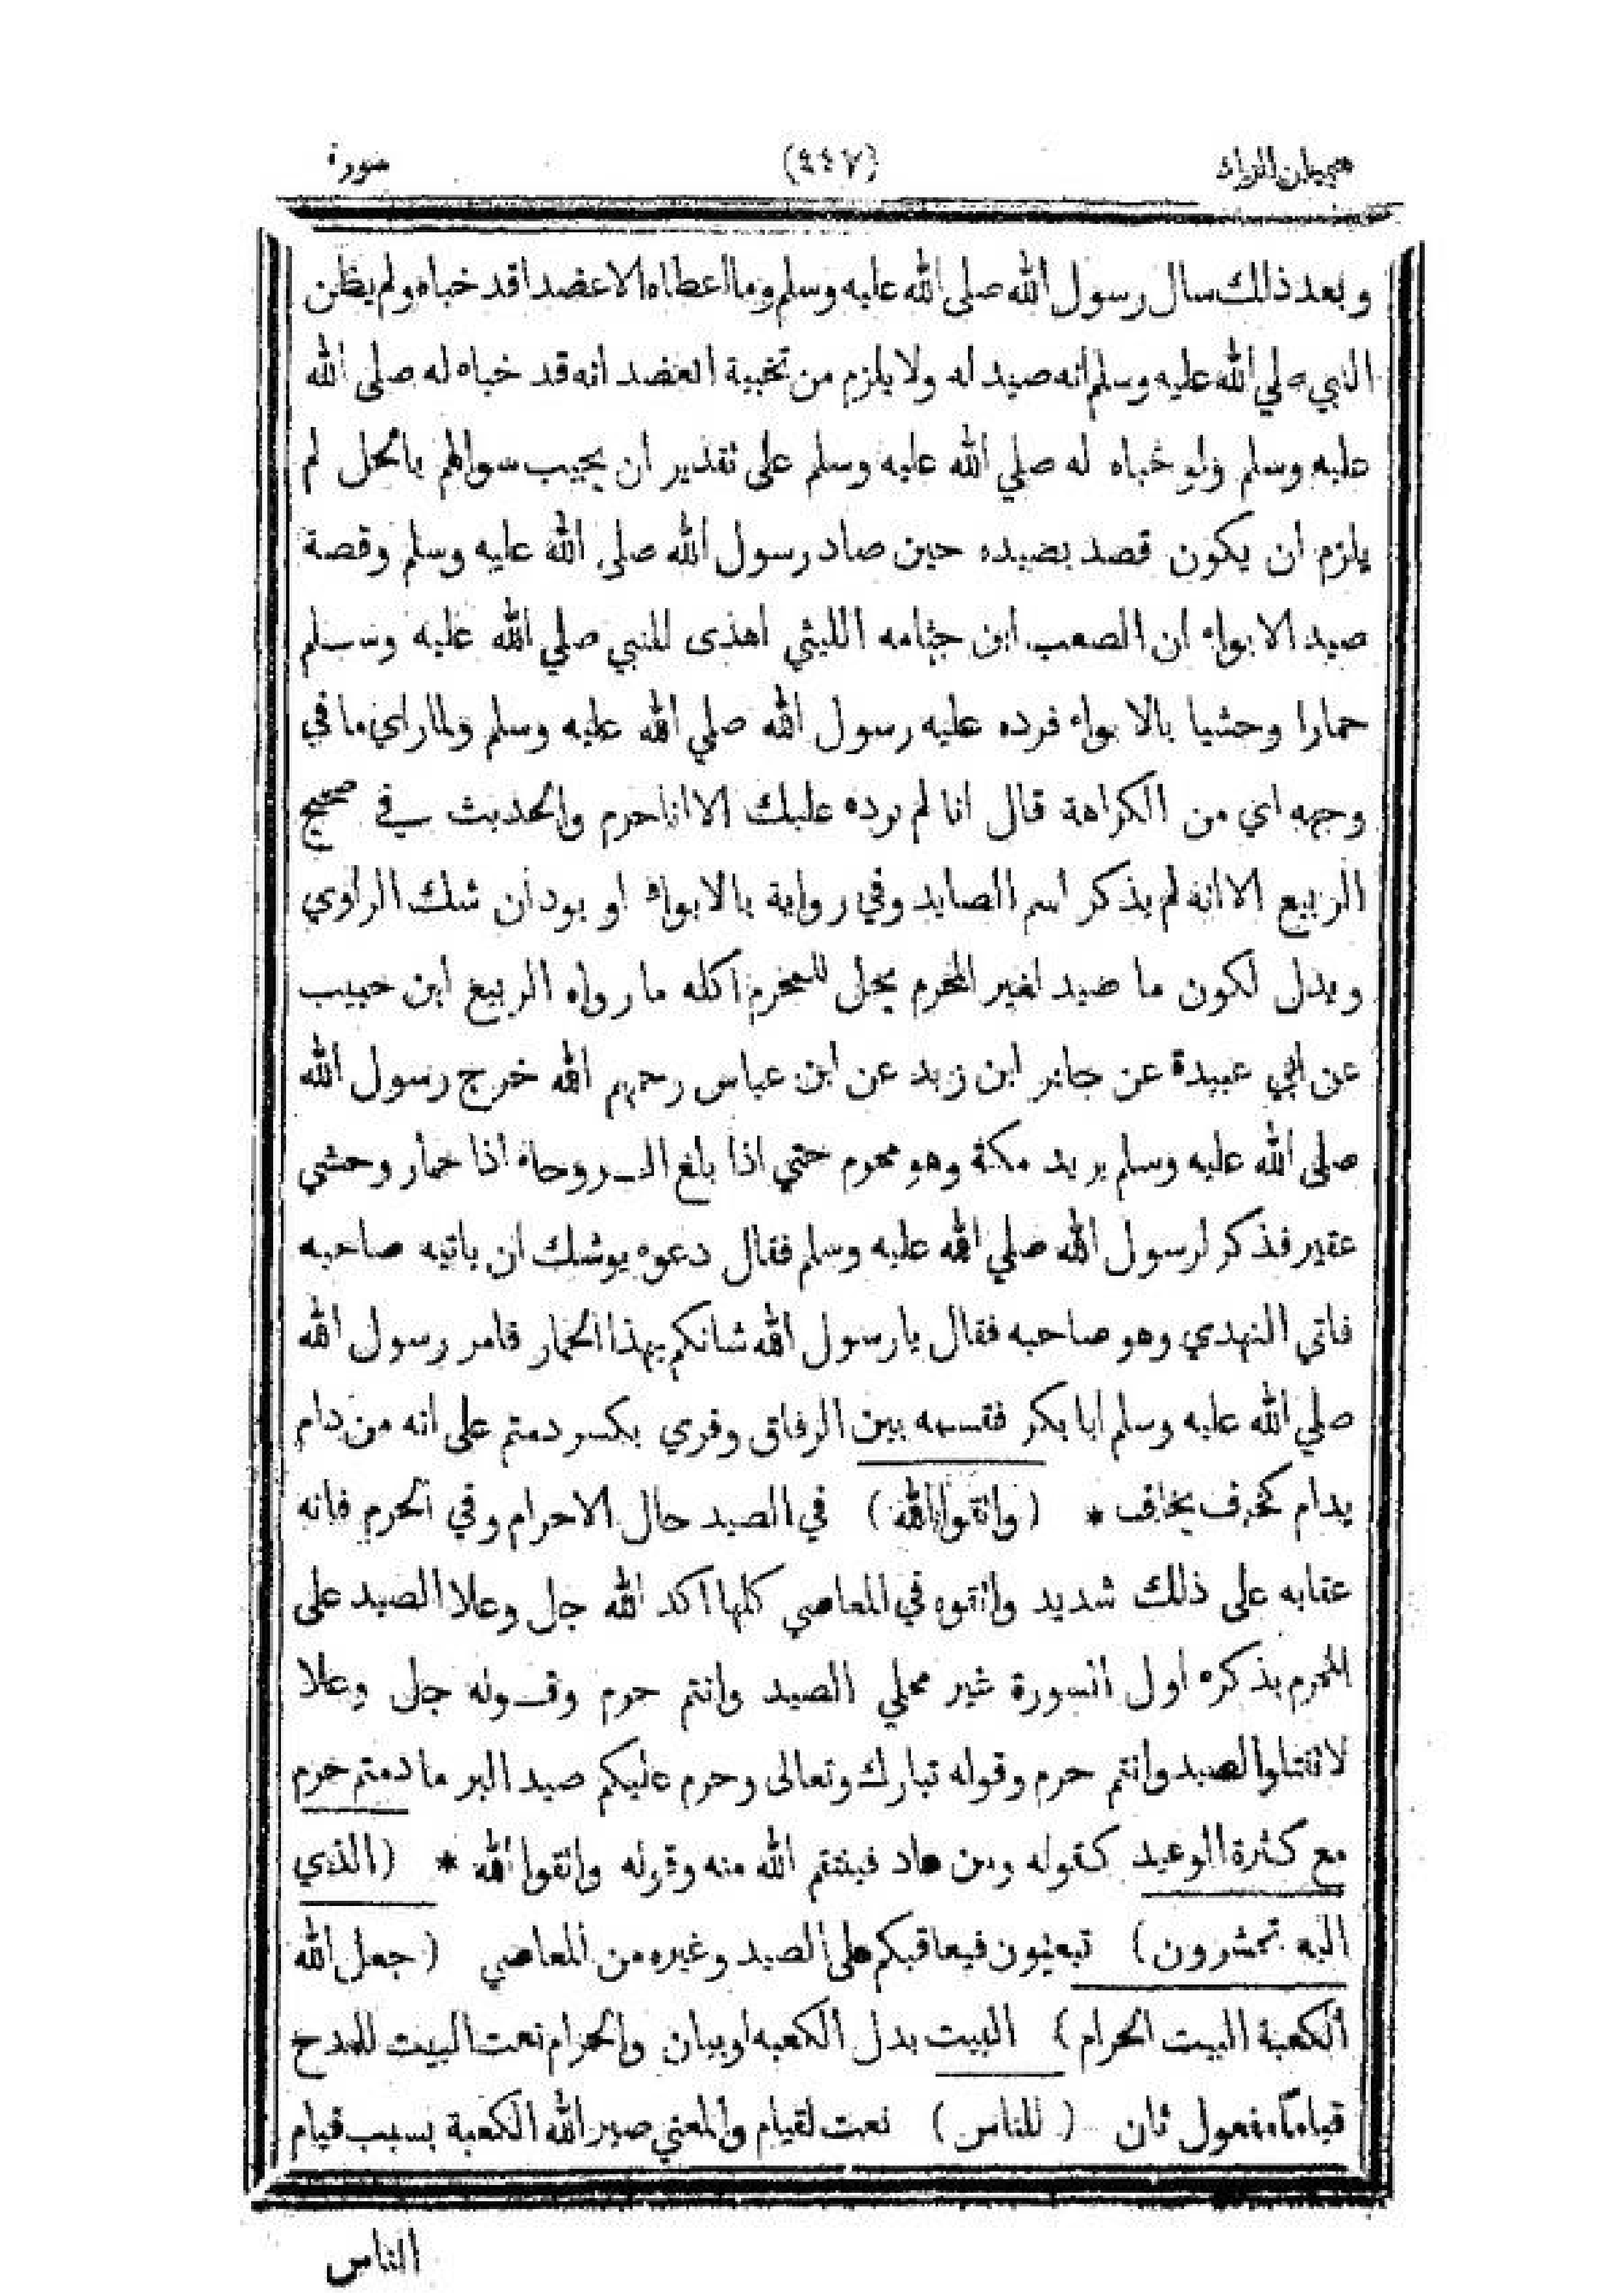 هميان الزاد (٤٤٧) سورة
وبعد ذلك سال رسول الله صلى الله عليه وسلم وما اعطاه الا عضدا قد خباه ولم يظن
النبي صلي الله عليه وسلم انه صيد له ولا يلزم من تخبية العضد انه قد خباه له صلى الله
عليه وسلم ولو خباه له صلي الله عليه وسلم على تقدير ان يجيب سوالهم بالحل لم
يلزم ان يكون قصد بصيده حين صاد رسول الله صلى الله عليه وسلم وقصة
صيد الابواء ان الصعب ابن جثامه الليثي اهدى للنبي صلي الله عليه وسلم
حمارا وحشيا بالابواء فرده عليه رسول الله صلي الله عليه وسلم ولما راي ما في
وجهه اي من الكراهة قال انا لم نرده عليك الا انا حرم والحديث في صحيح
الربيع الا انه لم يذكر اسم الصايد وفي رواية بالابواء او بودان شك الراوي
ويدل لكون ما صيد لغير المحرم يحل للمحرم اكله ما رواه الربيع ابن حبيب
عن ابي عبيدة عن جابر ابن زيد عن ابن عباس رحمهم الله خرج رسول الله
صلى الله عليه وسلم يريد مكة وهو محرم حتي اذا بلغ الـروحاء اذا حمار وحشي
عقير فذكر لرسول الله صلي الله عليه وسلم فقال دعوه يوشك ان ياتيه صاحبه
فاتي النهدي وهو صاحبه فقال يا رسول الله شانكم بهذا الحمار فامر رسول الله
صلي الله عليه وسلم ابا بكر فقسمه بين الرفاق وقري بكسر دمتم على انه من دام
يدام كخاف يخاف * (واتقوا الله) في الصيد حال الاحرام وفي الحرم فانه
عقابه على ذلك شديد واتقوه في المعاصي كلها اكد الله جل وعلا الصيد على
المحرم بذكره اول السورة غير محلي الصيد وانتم حرم وقـوله جل وعلا
لا تقتلوا الصيد وانتم حرم وقوله تبارك وتعالى وحرم عليكم صيد البر ما دمتم حرم
مع كثرة الوعيد كقوله ومن عاد فينتقم الله منه وقوله واتقوا الله * (الذي
اليه تحشرون) تبعثون فيعاقبكم على الصيد وغيره من المعاصي (جعل الله
الكعبة البيت الحرام) البيت بدل الكعبه او بيان والحرام نعت البيت للمدح
قياما مفعول ثان (للناس) نعت لقيام والمعني صير الله الكعبة بسبب قيام
الناس